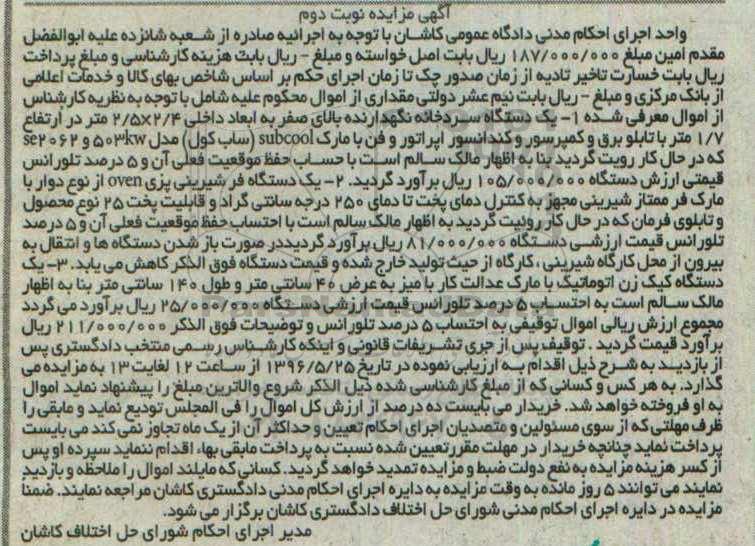 آگهی مزایده نوبت دوم
واحد اجرای احکام مدنی دادگاه عمومی کاشان با توجه به اجرائیه صادره از شعبه شانزده علیه ابوالفضل
مقدم امین مبلغ ۱۸۷/۰۰۰/۰۰۰ ریال بابت اصل خواسته و مبلغ - ریال بابت هزینه کارشناسی و مبلغ پرداخت
ریال بابت خسارت تاخیر تادیه از زمان صدور چک تا زمان اجرای حکم بر اساس شاخص بهای کالا و خدمات اعلامی
از بانک مرکزی و مبلغ - ریال بابت نیم عشر دولتی مقداری از اموال محکوم علیه شامل با توجه به نظریه کارشناس
از اموال معرفی شده ۱- یک دستگاه سردخانه نگهدارنده بالای صفر به ابعاد داخلی ۲/۵×۲/۴ متر در ارتفاع
۱/۷ متر با تابلو برق و کمپرسور و کندانسور اپراتور و فن با مارک subcool (ساب کول) مدل ۵۰۳kw و se۲۰۶۲
که در حال کار رویت گردید بنا به اظهار مالک سالم است با حساب حفظ موقعیت فعلی آن و ۵ درصد تلورانس
قیمتی ارزش دستگاه ۱۰۵/۰۰۰/۰۰۰ ریال برآورد گردید. ۲- یک دستگاه فر شیرینی پزی oven از نوع دوار با
مارک فر ممتاز شیرینی مجهز به کنترل دمای پخت تا دمای ۲۵۰ درجه سانتی گراد و قابلیت پخت ۲۵ نوع محصول
و تابلوی فرمان که در حال کار روئیت گردید به اظهار مالک سالم است با احتساب حفظ موقعیت فعلی آن و ۵ درصد
تلورانس قیمت ارزشی دستگاه ۸۱/۰۰۰/۰۰۰ ریال برآورد گردیددر صورت باز شدن دستگاه ها و انتقال به
بیرون از محل کارگاه شیرینی ، کارگاه از حیث تولید خارج شده و قیمت دستگاه فوق الذکر کاهش می یابد. ۳- یک
دستگاه کیک زن اتوماتیک با مارک عدالت کار با میز به عرض ۴۰ سانتی متر و طول ۱۴۰ سانتی متر بنا به اظهار
مالک سالم است به احتساب ۵ درصد تلورانس قیمت ارزشی دستگاه ۲۵/۰۰۰/۰۰۰ ریال برآورد می گردد
مجموع ارزش ریالی اموال توقیفی به احتساب ۵ درصد تلورانس و توضیحات فوق الذکر ۲۱۱/۰۰۰/۰۰۰ ریال
برآورد قیمت گردید . توقیف پس از جری تشریفات قانونی و اینکه کارشناس رسمی منتخب دادگستری پس
از بازدید به شرح ذیل اقدام به ارزیابی نموده در تاریخ ۱۳۹۶/۵/۲۵ از ساعت ۱۲ لغایت ۱۳ به مزایده می
گذارد. به هر کس و کسانی که از مبلغ کارشناسی شده ذیل الذکر شروع والاترین مبلغ را پیشنهاد نماید اموال
به او فروخته خواهد شد. خریدار می بایست ده درصد از ارزش کل اموال را فی المجلس تودیع نماید و مابقی را
ظرف مهلتی که از سوی مسئولین و متصدیان اجرای احکام تعیین و حداکثر آن از یک ماه تجاوز نمی کند می بایست
پرداخت نماید چنانچه خریدار در مهلت مقرر تعیین شده نسبت به پرداخت مابقی بهاء اقدام ننماید سپرده او پس
از کسر هزینه مزایده به نفع دولت ضبط و مزایده تمدید خواهد گردید. کسانی که مایلند اموال را ملاحظه و بازدید
نمایند می توانند ۵ روز مانده به وقت مزایده به دایره اجرای احکام مدنی دادگستری کاشان مراجعه نمایند. ضمنا
مزایده در دایره اجرای احکام مدنی شورای حل اختلاف دادگستری کاشان برگزار می شود.
مدیر اجرای احکام شورای حل اختلاف کاشان